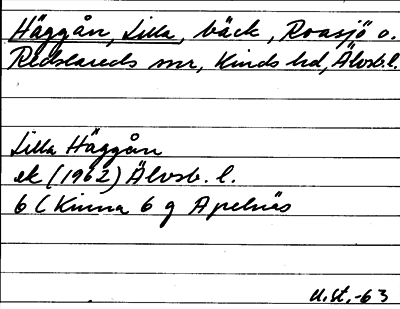 Häggån, Lilla, bäck, Roasjö o.
Redslareds snr, Kinds hd, Älvsb.l.
Lilla Häggån
ek (1962) Älvsb. l.
6 ( Kinna 6 g Apelnäs
U.St.-63